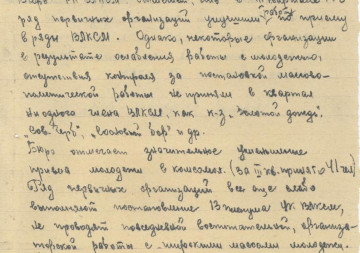 ряд первичных организаций улучшили работу по приему
в ряды ВЛКСМ. Однако, некоторые организации
в результате ослабления работы с молодежью,
отсутствия контроля за постановкой массово-
политической работы не приняли в квартал
ни одного члена ВЛКСМ, как к-з „Золотой дождь",
„Сов. Черв", „Сосновый бор" и др.
Бюро отмечает значительное уменьшение
приема молодежи в комсомол. (За III кв. принято 41 чел)
Ряд первичных организаций все еще слабо
выполняют постановление 13 пленума ЦК ВЛКСМ,
не проводят повседневной воспитательной, организа-
торской работы с широкими массами молодежи.